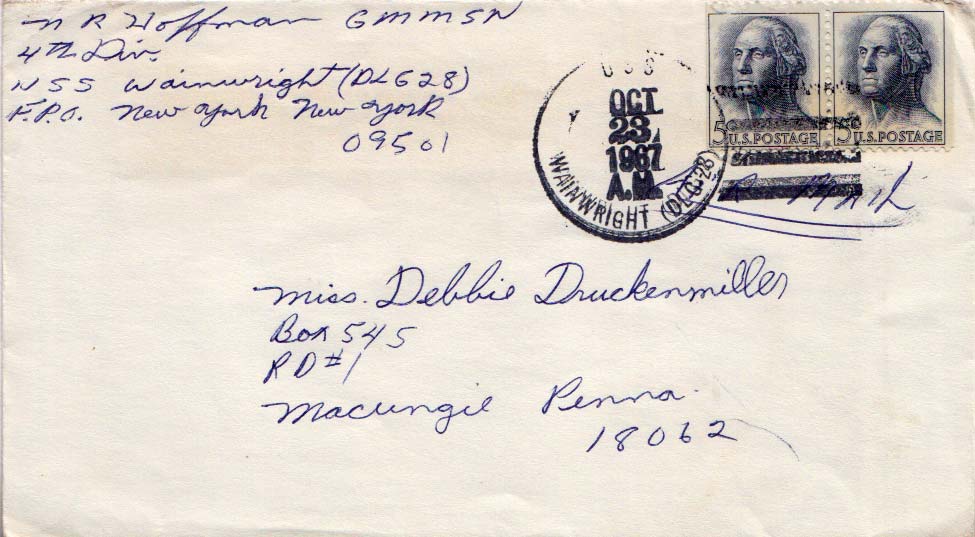 N R Hoffman GMMSN
4th Div.
USS Wainwright (DLG28)
F.P.O. New York New York
09501
USS
OCT
23
1967
A.M.
WAINWRIGHT (DLG-28)
5c U.S. POSTAGE
5c U.S. POSTAGE
AIR MAIL
Miss. Debbie Druckenmiller
Box 545
RD #1
Macungie Penna.
18062